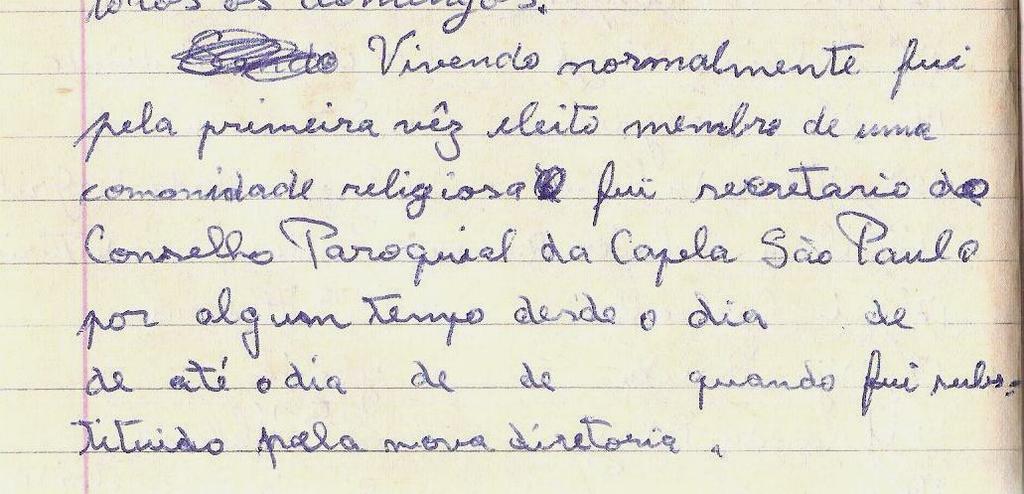 todos os domingos.
Vivendo normalmente fui
pela primeira vêz eleito membro de uma
comonidade religiosa fui secretario do
Conselho Paroquial da Capela São Paulo
por algum tempo desde o dia de
de até o dia de de quando fui subs-
tituido pela nova diretoria.